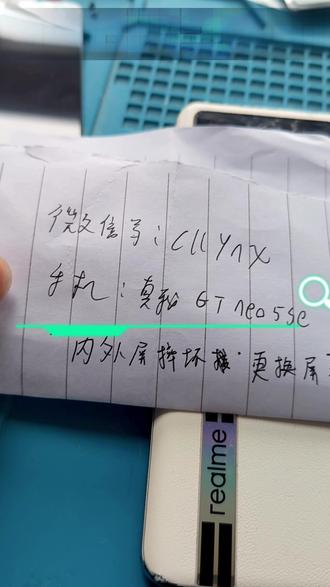 微信号：cllynx
手机：真我 GT neo5se
内外屏摔坏 更换屏
realme